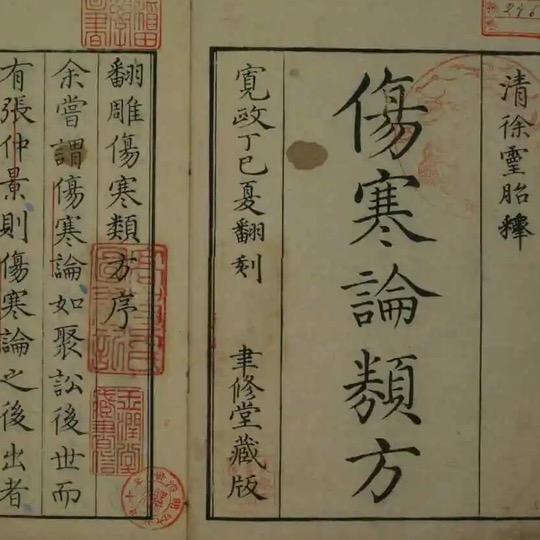 清徐靈胎釋
傷寒論類方
寬政丁巳夏翻刻
聿修堂藏版
翻雕傷寒類方序
余嘗謂傷寒論如聚訟後世而
有張仲景則傷寒論之後出者